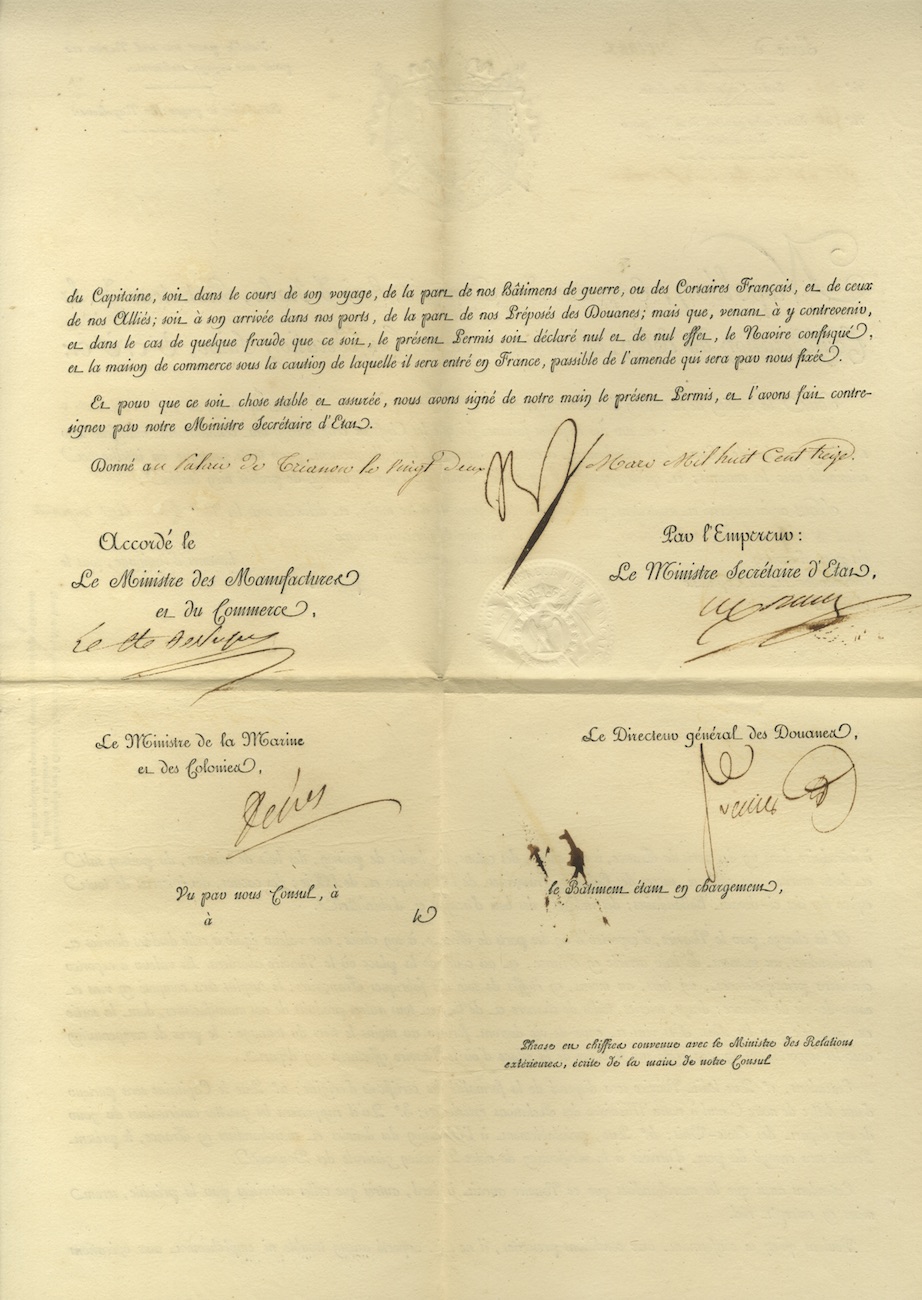 du Capitaine, soit dans le cours de son voyage, de la part de nos Bâtimens de guerre, ou des Corsaires Français, et de ceux
de nos Alliés; soit à son arrivée dans nos ports, de la part de nos Préposés des Douanes; mais que, venant à y contrevenir,
et dans le cas de quelque fraude que ce soit, le présent Permis soit déclaré nul et de nul effet, le Navire confisqué,
et la maison de commerce sous la caution de laquelle il sera entré en France, passible de l'amende qui sera par nous fixée.
Et pour que ce soit chose stable et assurée, nous avons signé de notre main le présent Permis, et l'avons fait contre-
signer par notre Ministre Secrétaire d'Etat.
Donné au Palais de Trianon le vingt deux Mars Mil huit Cent treize.
Accordé le
Par l'Empereur:
Le Ministre des Manufactures
et du Commerce,
Le Ministre Secrétaire d'Etat,
Le Cte
Le Ministre de la Marine
et des Colonies,
Le Directeur général des Douanes,
Decrès
Vu par nous Consul, à
le Bâtiment étant en chargement,
à le
Phrase en chiffres convenue avec le Ministre des Relations
extérieures, écrite de la main de notre Consul